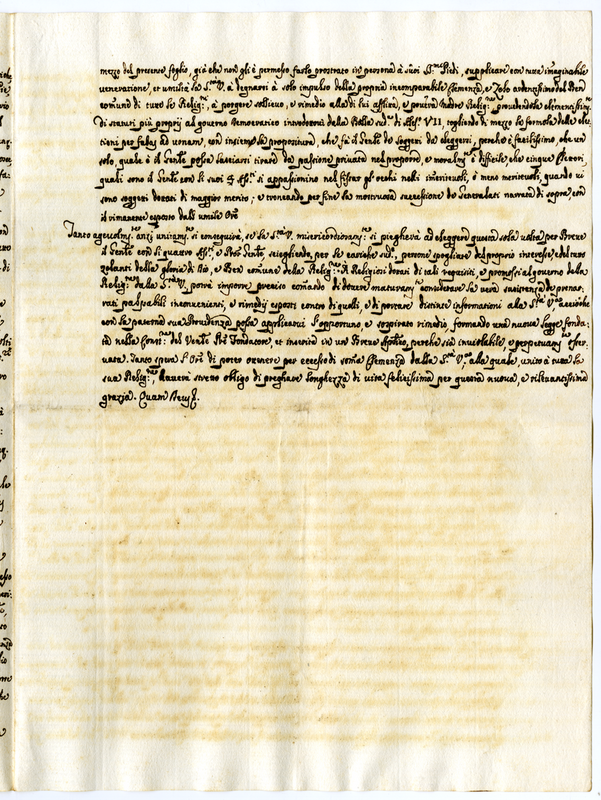 mezzo del presente foglio, già che non gli è permesso farlo prostrato in persona à suoi S.mi Piedi, supplicare con tutta imaginabile
venerazione, et umiltà la S.tà V.a à degnarsi à solo impulso della propria incomparabile Clemenza, e Zelo ardentissimo del Ben
comune di tutte le Relig.ni, à porgere sollievo, e rimedio alla di lui afflitta, e povera Madre Relig.ne provedendola clementissim.te
di statuti più proprij al governo Democratico introdotto dalla Bolla sud.a di Aless.o VII, togliendo di mezzo la formola delle ele-
tioni per fabas ad urnam, con insieme la propositura, che fà il Gen.le de soggetti da eleggersi, perche è facilissimo, che un
solo, quale è il Gen.le possa lasciarsi tirare da passione privata nel proporre, e moralm.te è difficile che cinque Elettori,
quali sono il Gen.le con li suoi 4 Ass.ti si appassionino nel fissar gl'occhi nelli immeritevoli, ò meno meritevoli, quando vi
sono soggetti dotati di maggior merito; e troncando per fine la mostruosa successione de Generalati narrata di sopra, con
il rimanente esposto dall'umile Ore
Tanto agevolm.te anzi unicam.te si conseguirà, se la S.tà V.a misericordiosam.te si piegherà ad eleggere questa sola volta per Breve
il Gen.le con li quattro Ass.ti, e Pro.re Gen.le, scieglendo, per le cariche sud.e, persone spogliate del proprio interesse, ed tutto
zelanti della gloria di Dio, e Ben comune della Relig.ne A Religiosi dotati di tali requisiti, e promossi al governo della
Relig.ne dalla S.tà V.a, potrà imporre preciso comando di dovere maturam.te considerare la vera sussistenza de prenar-
rati palpabili inconvenienti, e rimedij esposti contro di quelli, e di portare distinte informationi alla S.tà V.a accioche
con la paterna sua Providenza possa applicarvi l'opportuno, e sospirato rimedio, formando una nuova Legge fonda-
ta nella Constit.ne del Ven.le P.re Fondatore, et inserita in un Breve Aplico, perche sia inviolabile, e perpetuam.te osser-
vata. Tanto spera l'Ore di poter ottenere per eccesso di somma Clemenza dalla S.tà V.a, alla quale, unito à tutta la
sua Relig.ne, haverà stretto obligo di preghare longhezza di vita felicissima per questa nuova, e rilevantissima
grazia. Quam Deus &.